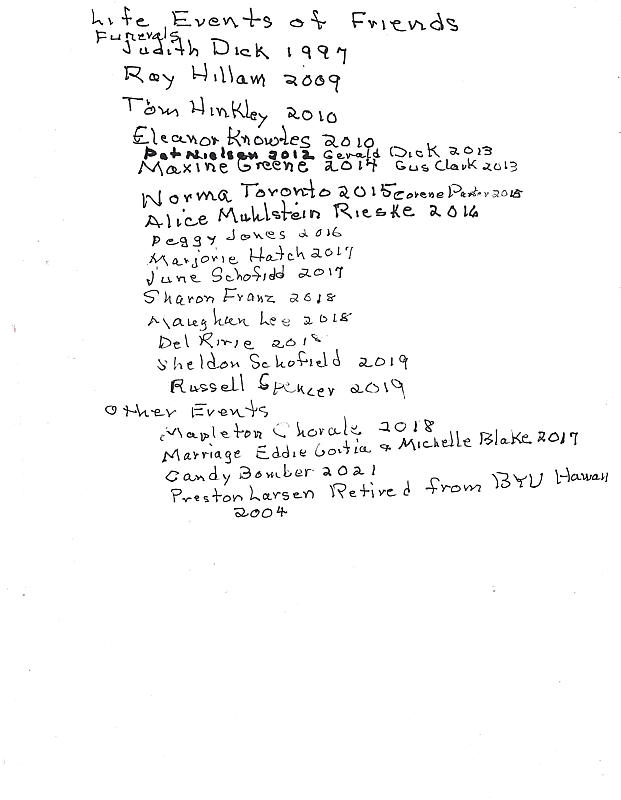 Life Events of Friends
Funerals
Judith Dick 1997
Ray Hillam 2009
Tom Hinkley 2010
Eleanor Knowles 2010
Pat Nielsen 2012 Gerald Dick 2013
Maxine Greene 2014 Gus Clark 2013
Norma Toronto 2015 Corene 2015
Alice Muhlstein Rieske 2016
Peggy Jones 2016
Marjorie Hatch 2017
June Schofidd 2017
Sharon Franz 2018
Maughan Lee 2018
Del Ririe 2018
Sheldon Schofield 2019
Russell Spencer 2019
Other Events
Mapleton Chorale 2018
Marriage Eddie & Michelle Blake 2017
Candy Bomber 2021
Preston Larsen Retired from BYU Hawaii
2004